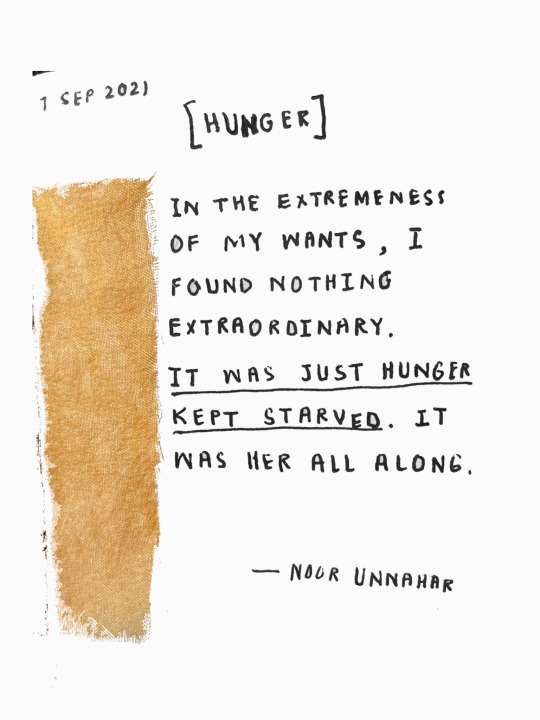 7 SEP 2021
[HUNGER]
IN THE EXTREMENESS
OF MY WANTS, I
FOUND NOTHING
EXTRAORDINARY.
IT WAS JUST HUNGER
KEPT STARVED. IT
WAS HER ALL ALONG.
— NOOR UNNAHAR